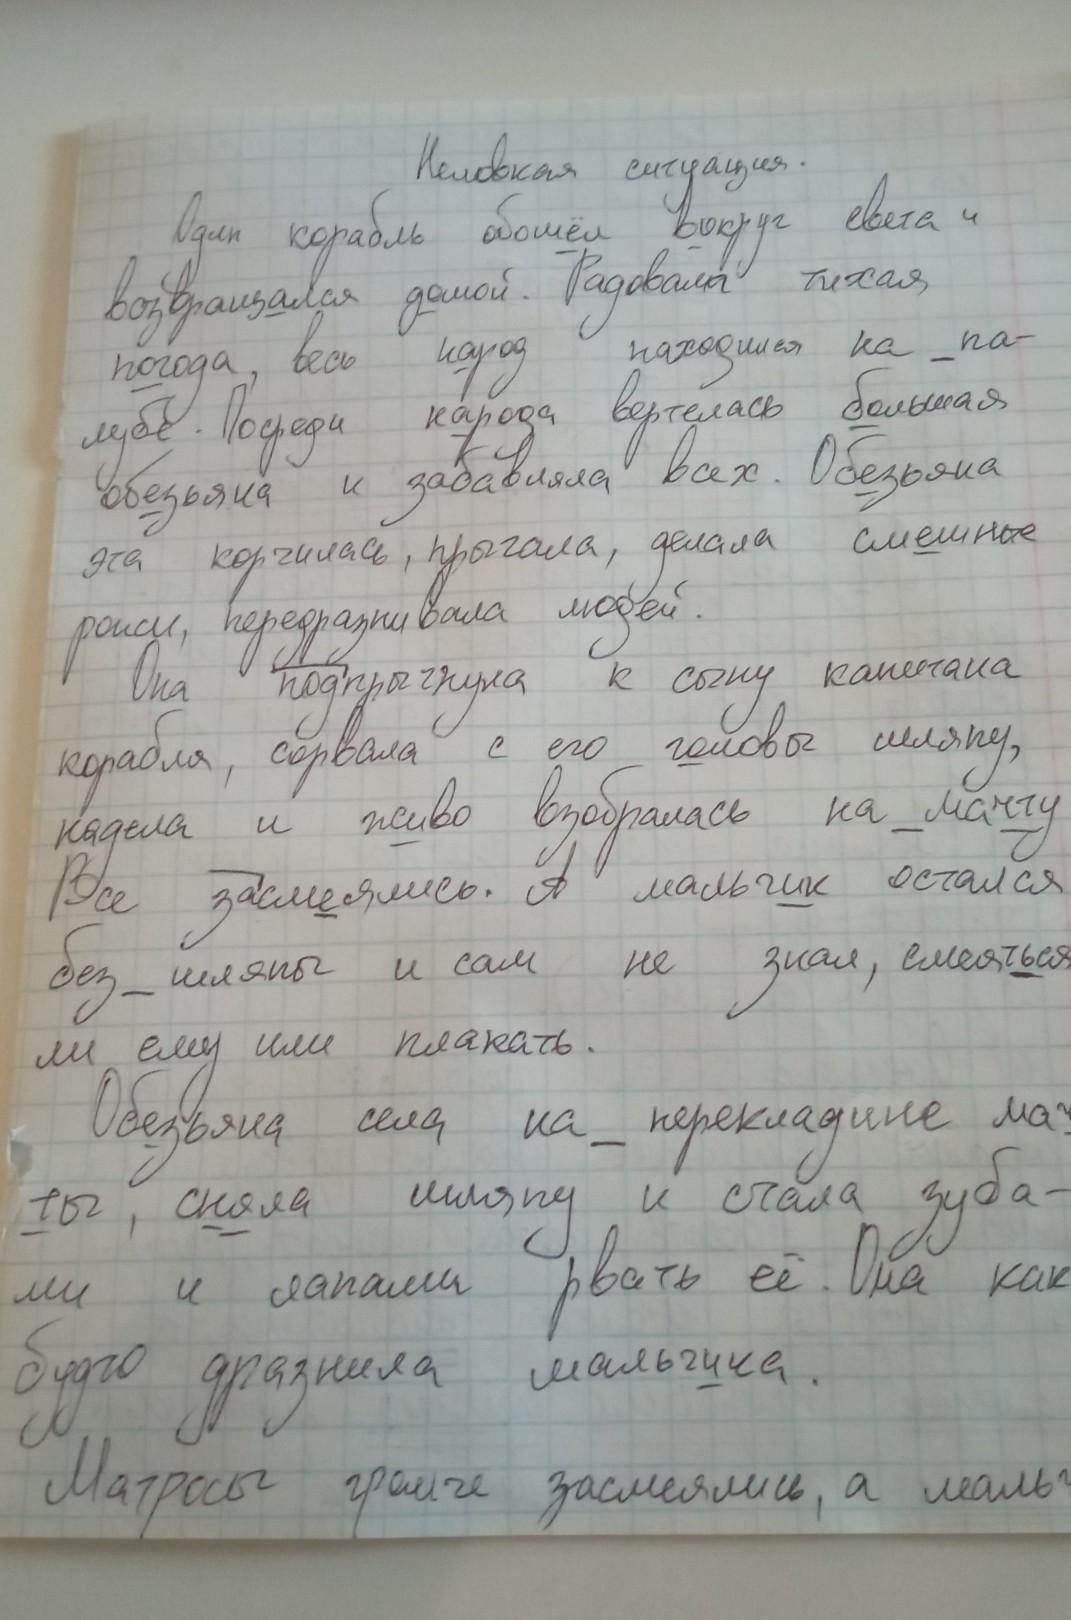 Неловкая ситуация.
Один корабль обошёл вокруг света и
возвращался домой. Радовала тихая
погода, весь народ находился на па-
лубе. Посреди народа вертелась большая
обезьяна и забавляла всех. Обезьяна
эта корчилась, прыгала, делала смешные
рожи, передразнивала людей.
Она подпрыгнула к сыну капитана
корабля, сорвала с его головы шляпу,
надела и живо взобралась на мачту
Все засмеялись. А мальчик остался
без шляпы и сам не знал, смеяться
ли ему или плакать.
Обезьяна села на перекладине мач
ты, сняла шляпу и стала зуба-
ми и лапами рвать её. Она как
будто дразнила мальчика.
Матросы громче засмеялись, а маль